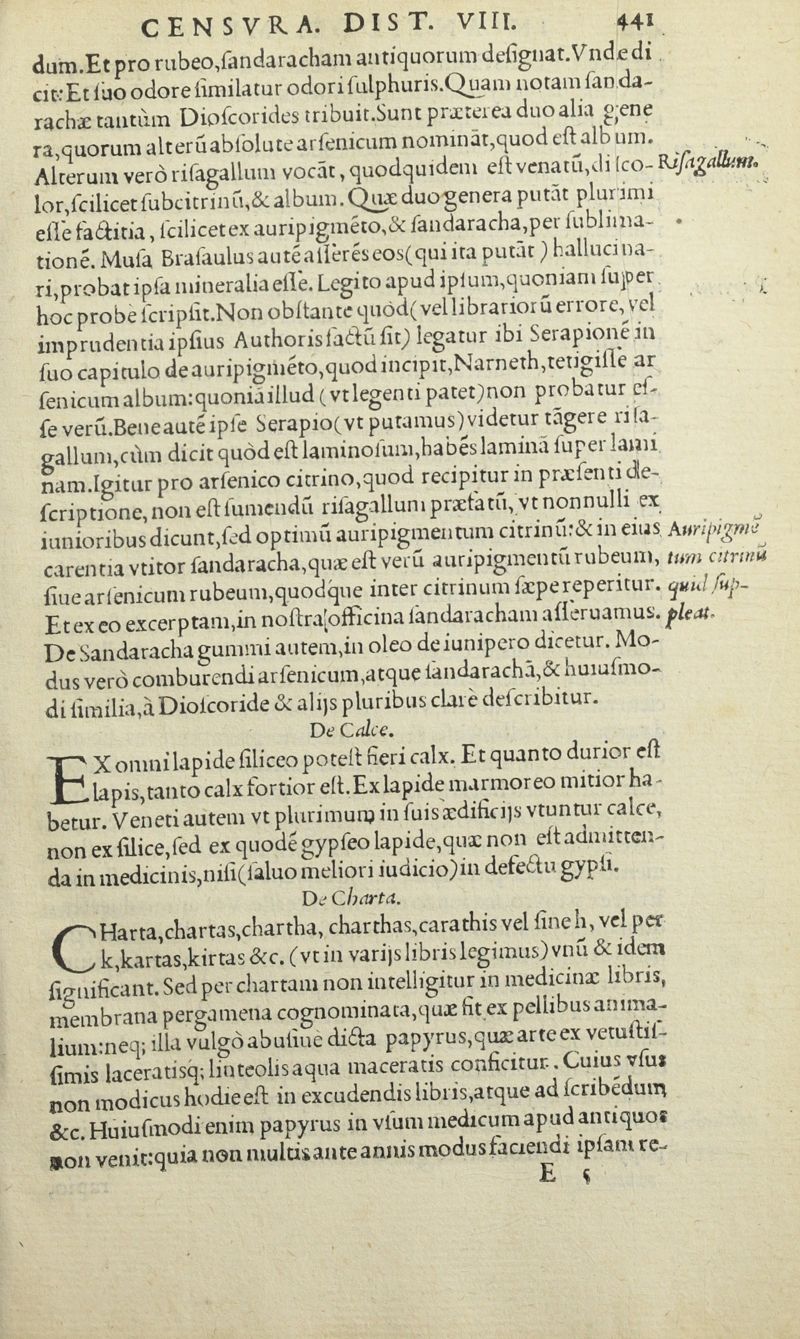 CENSVRA. DIST. VIII. 441
dum. Et pro rubeo, ſandaracham antiquorum deſignat. Vnde di
cit: Et ſuo odore ſimilatur odori ſulphuris. Quam notam ſanda-
rachæ tantùm Dioſcorides tribuit. Sunt præterea duo alia gene
ra, quorum alterũ abſolute arſenicum nominãt, quod eſt album.
Alterum verò riſagallum vocãt, quodquidem eſt venatũ, di ſco-
Riſagallum.
lor, ſcilicet ſubcitrinũ, & album. Quæ duo genera putãt plurimi
eſſe factitia, ſcilicet ex auripigmẽto, & ſandaracha, per ſublima-
tionẽ. Muſa Braſaulus autẽ aſſerẽs eos (qui ita putãt) hallucina-
ri, probat ipſa mineralia eſſe. Legito apud ipſum, quoniam ſuper
hoc probè ſcripſit. Non obſtante quòd (vel librariorũ errore, vel
imprudentia ipſius Authoris factũ ſit) legatur ibi Serapionẽ in
ſuo capitulo de auripigmẽto, quod incipit, Narneth, tetigiſſe ar
ſenicum album: quoniã illud (vt legenti patet) non probatur eſ-
ſe verũ. Bene autẽ ipſe Serapio (vt putamus) videtur tãgere riſa-
gallum, cùm dicit quòd eſt laminoſum, habẽs laminã ſuper lami
nam. Igitur pro arſenico citrino, quod recipitur in præſenti de-
ſcriptione, non eſt ſumendũ riſagallum præfatũ, vt nonnulli ex
iunioribus dicunt, ſed optimũ auripigmentum citrinũ: & in eius
Auripigmẽ
carentia vtitor ſandaracha, quæ eſt verũ auripigmentũ rubeum,
tum citrinũ
ſiue arſenicum rubeum, quodque inter citrinum ſæpe reperitur.
quid ſup-
Et ex eo excerptam, in noſtra officina ſandaracham aſſeruamus.
pleat.
De Sandaracha gummi autem, in oleo de iunipero dicetur. Mo-
dus verò comburendi arſenicum, atque ſandarachã, & huiuſmo-
di ſimilia, à Dioſcoride & alijs pluribus clarè deſcribitur.
De Calce.
EX omni lapide ſiliceo poteſt fieri calx. Et quanto durior eſt
lapis, tanto calx fortior eſt. Ex lapide marmoreo mitior ha-
betur. Veneti autem vt plurimum in ſuis ædificijs vtuntur calce,
non ex ſilice, ſed ex quodẽ gypſeo lapide, quæ non eſt admitten-
da in medicinis, niſi (ſaluo meliori iudicio) in defectu gypſi.
De Charta.
CHarta, chartas, chartha, charthas, carathis vel ſine h, vel per
k, kartas, kirtas &c. (vt in varijs libris legimus) vnũ & idem
ſignificant. Sed per chartam non intelligitur in medicinæ libris,
membrana pergamena cognominata, quæ fit ex pellibus anima-
lium: neq; illa vulgò abuſiuè dicta papyrus, quæ arte ex vetuſtiſ-
ſimis laceratisq; linteolis aqua maceratis conficitur. Cuius vſus
non modicus hodie eſt in excudendis libris, atque ad ſcribẽdum
&c. Huiuſmodi enim papyrus in vſum medicum apud antiquos
non venit: quia non multis ante annis modus faciendi ipſam re-
E 5